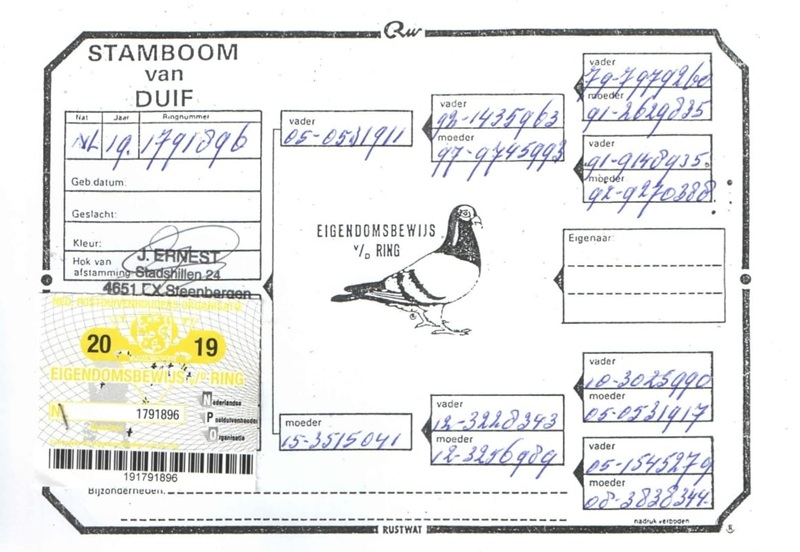 STAMBOOM
van
DUIF
Nat Jaar Ringnummer
NL 19. 1791896
Geb.datum:
Geslacht:
Kleur:
Hok van afstamming
J. ERNEST
Stadshillen 24
4651 EX Steenbergen
NED. POSTDUIVENHOUDERS ORGANISATIE
20 19
EIGENDOMSBEWIJS v/d RING
1791896
Nederlandse
Postduivenhouders
Organisatie
191791896
Bijzonderheden:
vader
05-0531911
vader
92-1435963
moeder
97-9745993
vader
79-7979260
moeder
91-2629835
vader
91-9148935.
moeder
92-9270388
EIGENDOMSBEWIJS
v/D RING
Eigenaar:
moeder
15-3515041
vader
12-3228343
moeder
12-3256989
vader
10-3025990
moeder
05-0531917
vader
05-1545279
moeder
08-3838344
RUSTWAT
nadruk verboden